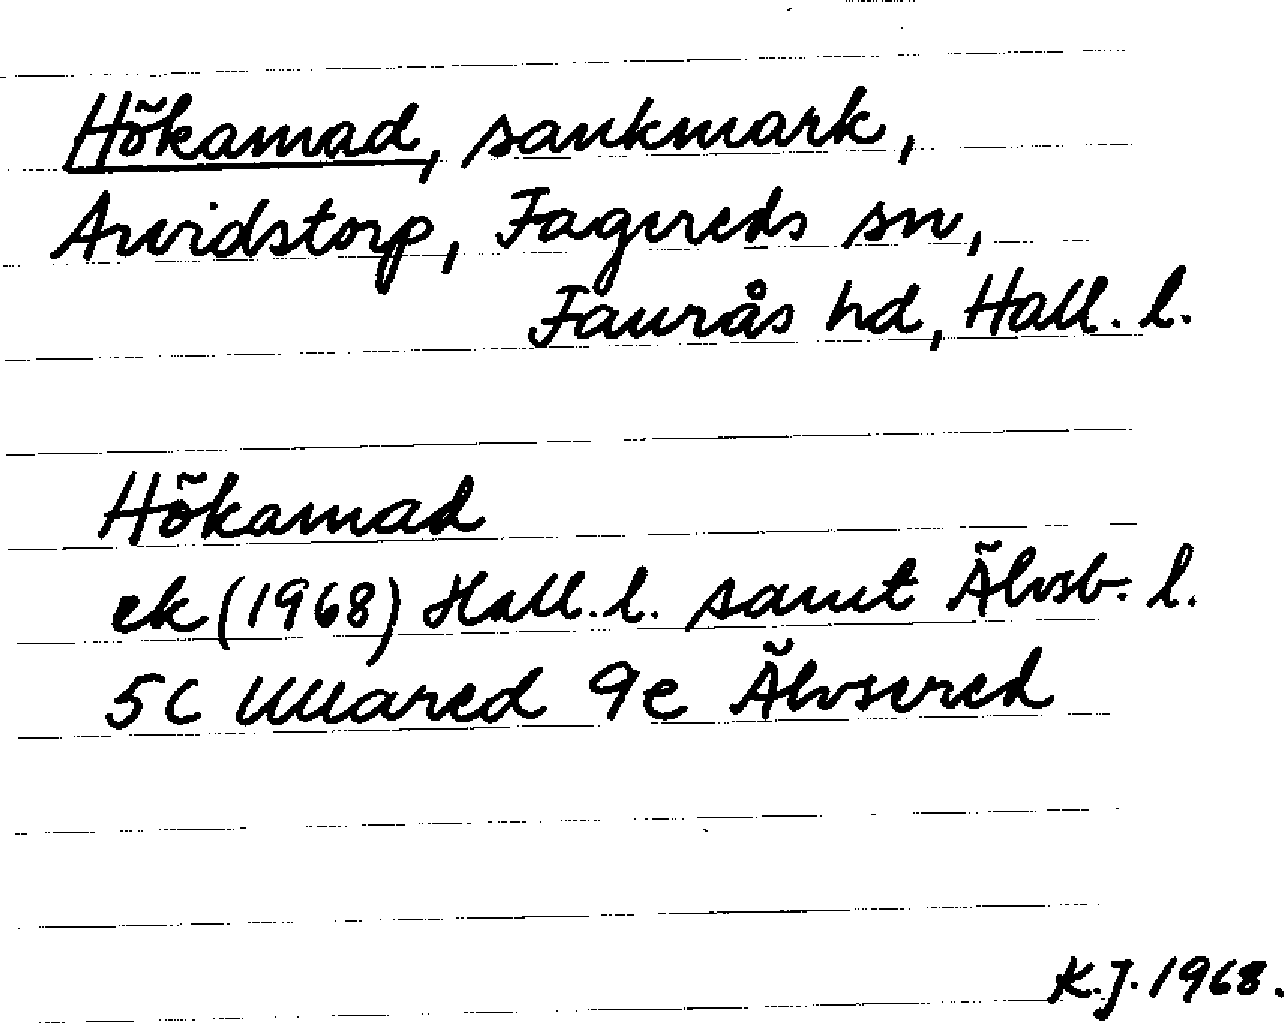 Hökamad, sankmark,
Arvidstorp, Fagereds sn,
Faurås hd, Hall. l.
Hökamad
ek (1968) Hall. l. samt Älvsb. l.
5C Ullared 9e Älvsered
K.J. 1968.